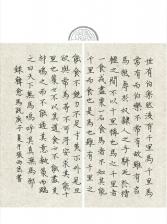 世有伯樂然後有千里馬千里馬
常有而伯樂不常有故雖有名
馬祇辱於奴隸人之手駢死於槽
櫪之間不以千里稱也馬之千里者
一食或盡粟一石食馬者不知其能
千里而食也是馬也雖有千里之
能食不飽力不足才美不外見且
欲與常馬等不可得安求其能千
里也策之不以其道食之不能盡其
材鳴之不能通其意執策而臨
之曰天下無馬嗚呼其真無馬邪
錄韓愈馬說庚子夏月書